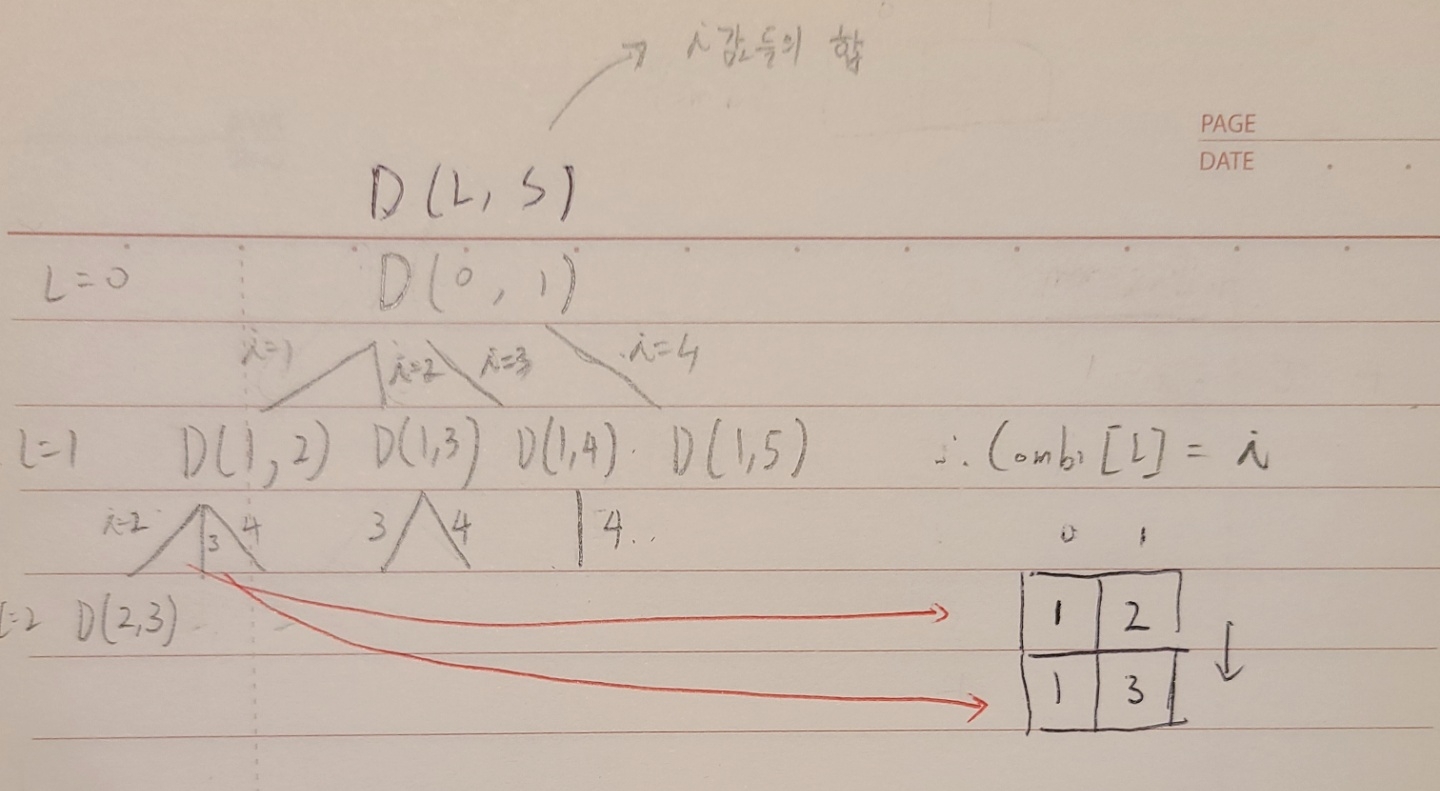 i값들의 합
PAGE
DATE
D(L, S)
L=0 D(0, 1)
i=1 i=2 i=3 i=4
L=1 D(1, 2) D(1,3) D(1,4) D(1,5) ∴ Combi[L] = i
i=2 3 4 3 4 4..
0 1
L=2 D(2,3) 1 2
1 3